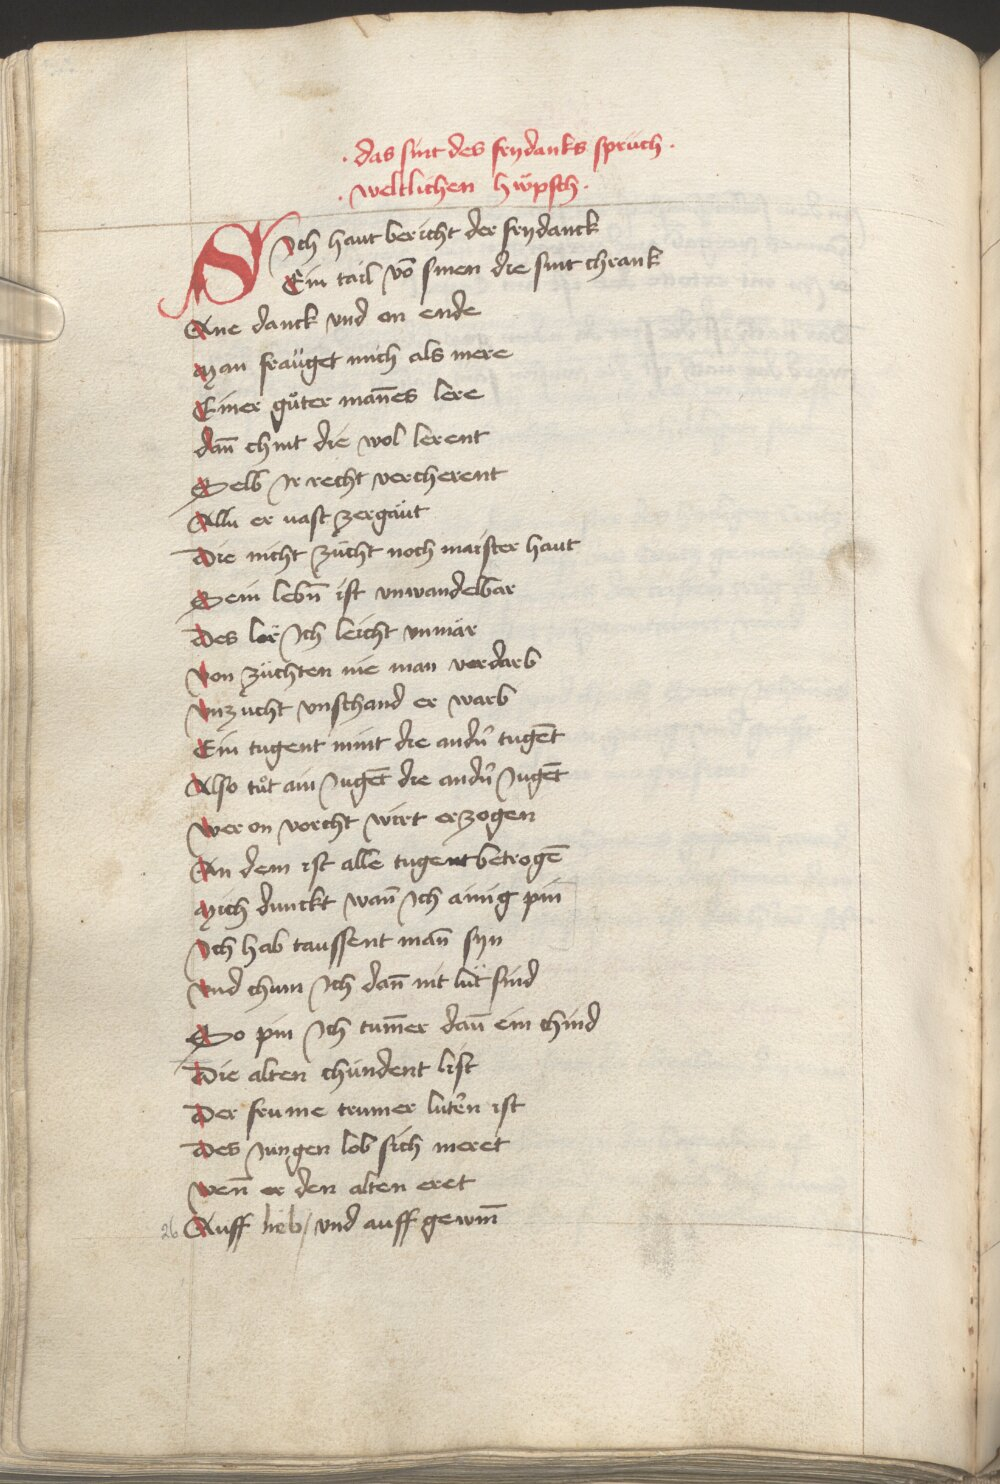 · das sint des frydanks sprüch ·
· weltlichen hüpsch ·
Sich haut bericht der frydanck
Ein tail vō sinen die sint chrank
Ane danck vnd on ende
Man frauget mich als mere
Einer gůter man̄es lere
dan̄ chint die wol lerent
Selb Ir recht vercherent
Allu er vast zergaüt
Die nicht zücht noch maister haut
Sein lebn̄ ist vnwandelbar
Des ler Ich leicht vnmär
Von züchten nie man verdarb
Vnzucht vnschand er warb
Ein tugent nimt die andn̄ tugēt
Also tůt ain Jugēt die andn̄ Jugēt
Wer on vorcht wirt erzogen
An dem ist alle tugent betrogē
Mich dunckt wan̄ Ich ainig pin
Ich hab taussent man̄ syn
Vnd chum Ich dan̄ nit lüt sind
So pin Ich tum̄er dan̄ ein chind
Die alten chündent list
Der frume trumer lutern ist
Des Jungen lob sich meret
Wen̄ er den alten eret
26 Auff lieb / vnd auff gewin̄